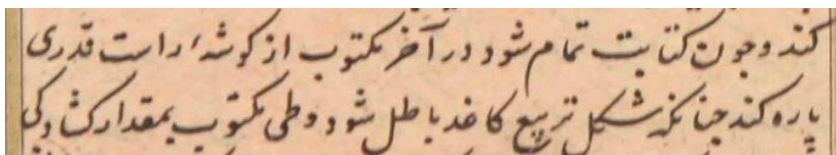 کند و چون کتابت تمام شود در آخر مکتوب از کوشهٔ راست قدری
پاره کند چنانکه شکل تربیع کاغذ باطل شود و طی مکتوب بمقدار کشادکی